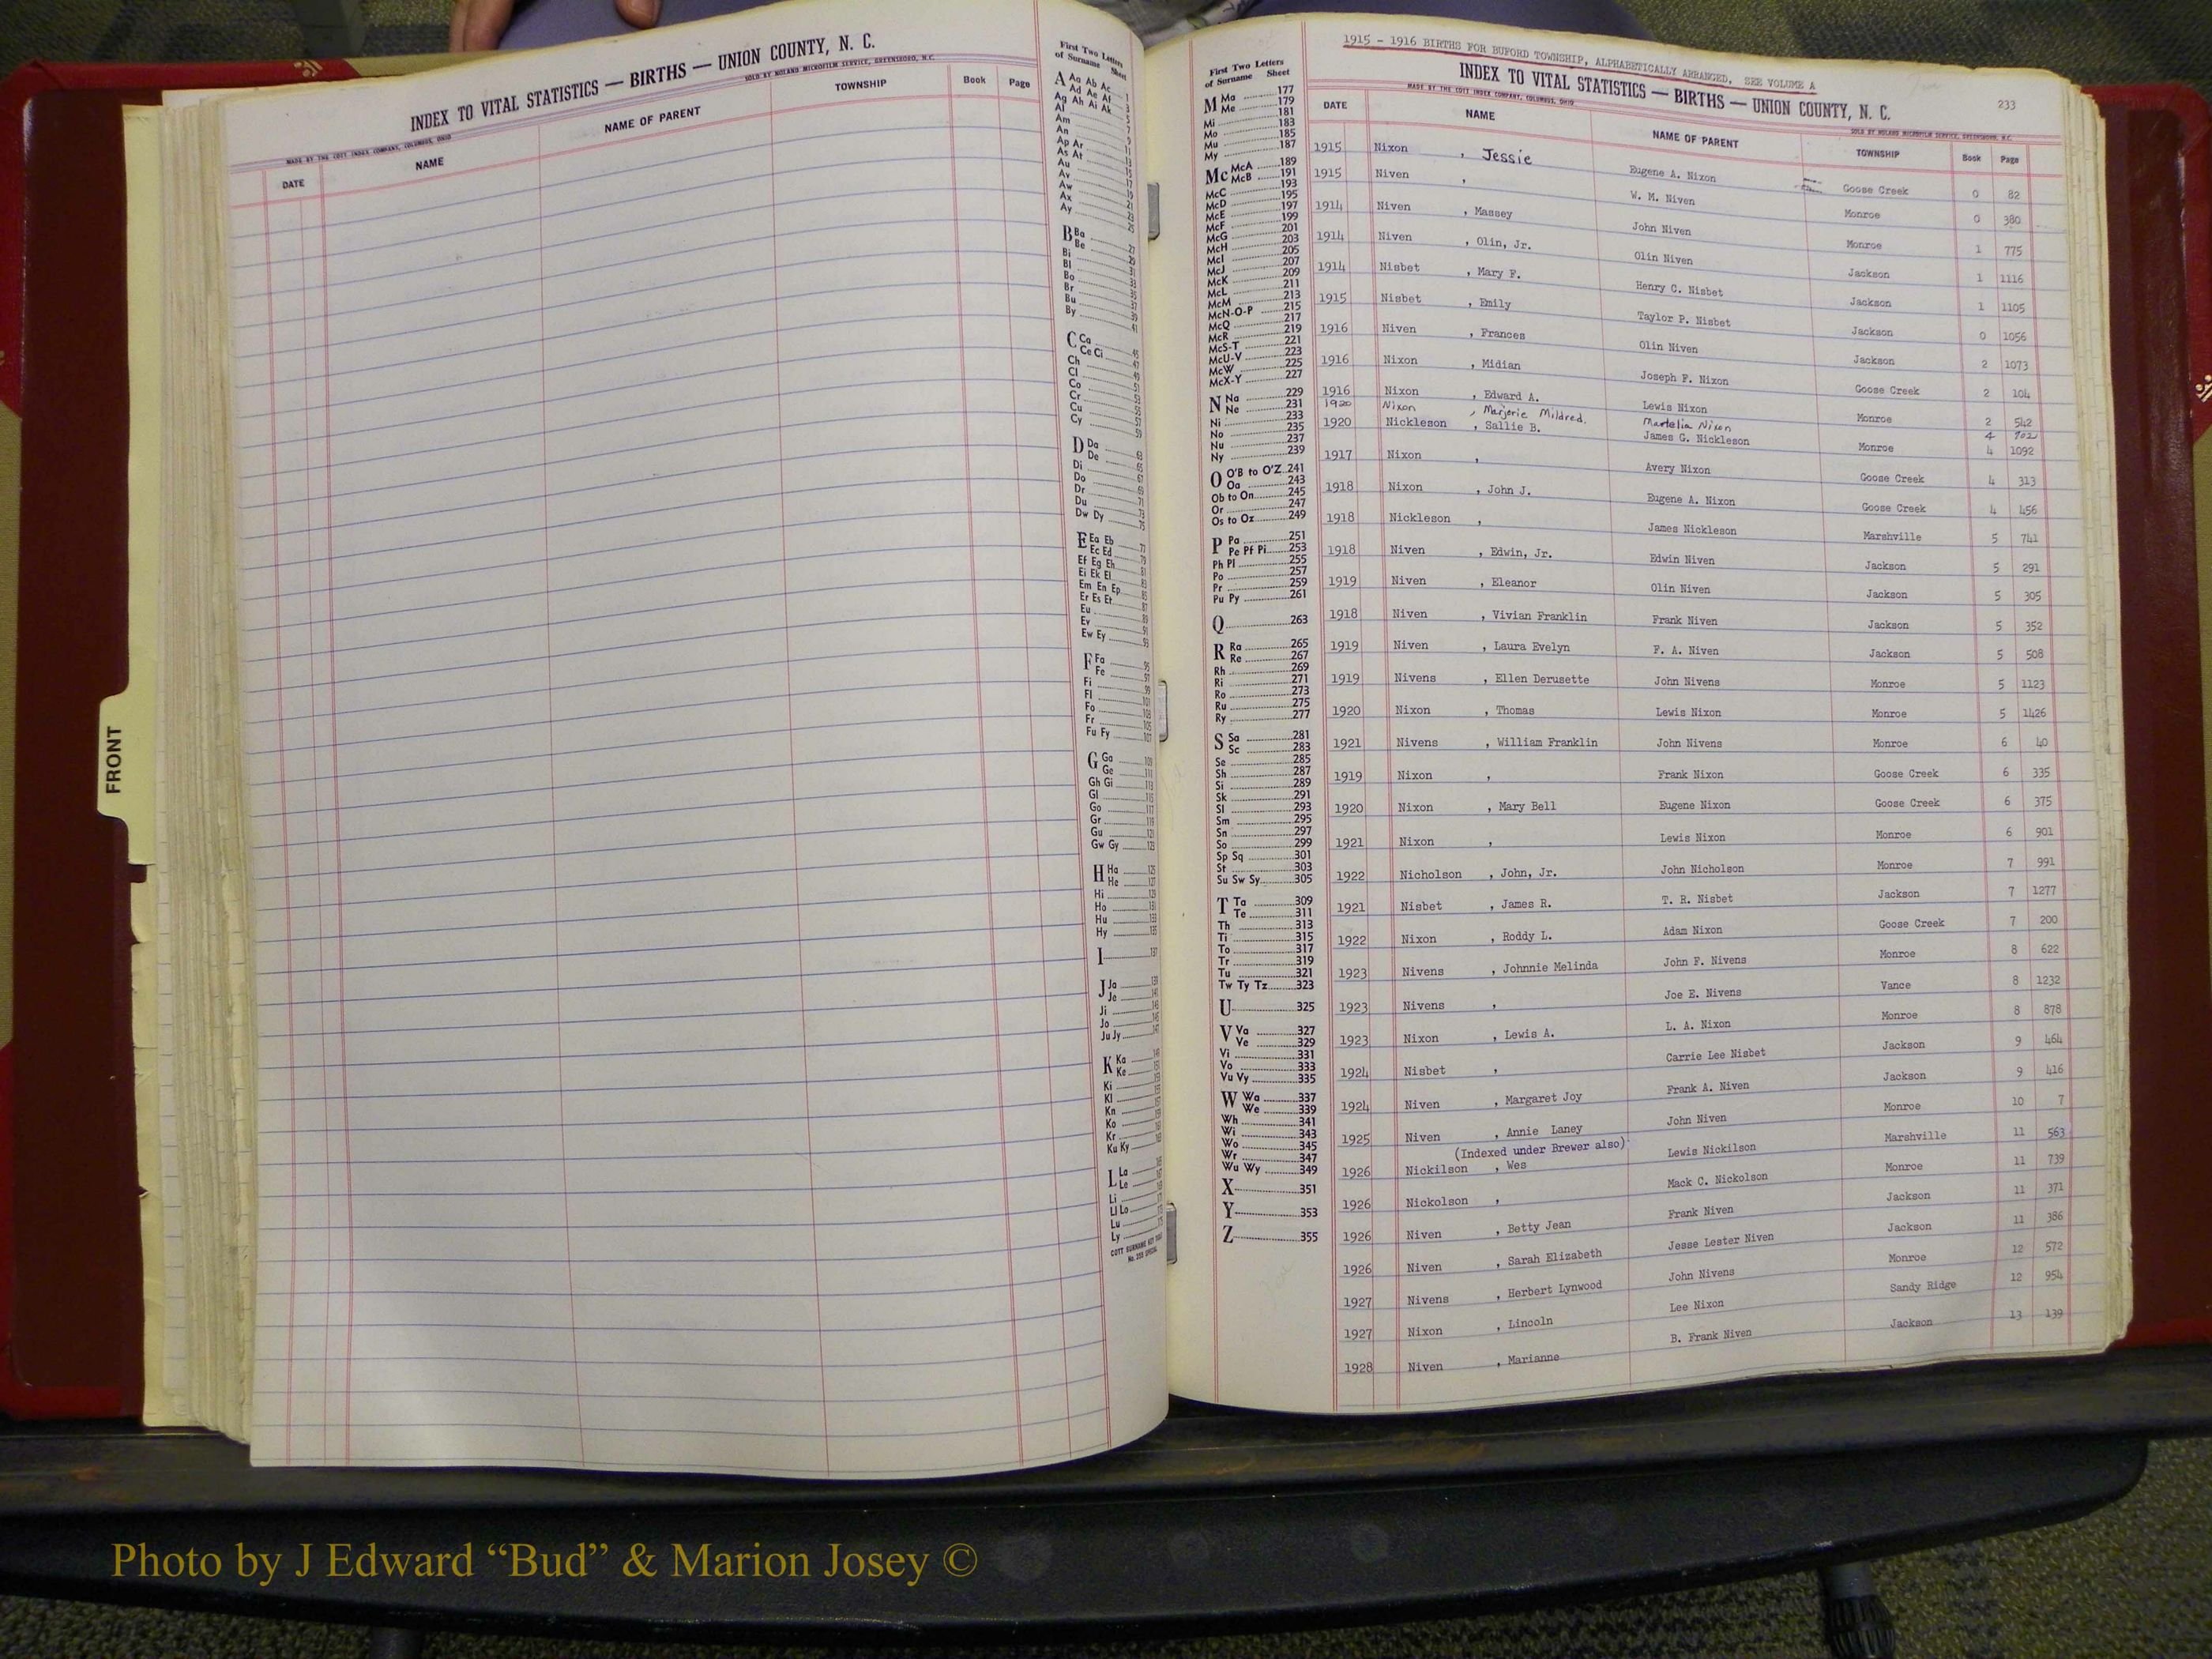 FRONT
INDEX TO VITAL STATISTICS — BIRTHS — UNION COUNTY, N. C.
MADE BY THE COTT INDEX COMPANY, COLUMBUS, OHIO SOLD BY NOLAND MICROFILM SERVICE, GREENSBORO, N.C.
DATE NAME NAME OF PARENT TOWNSHIP Book Page
First Two Letters
of Surname Sheet
A Aa Ab Ac
Ad Ae Af
Ag Ah Ai Ak
Al
Am
An
Ap Ar
As At
Au
Av
Aw
Ax
Ay
B Ba
Be
Bi
Bl
Bo
Br
Bu
By
C Ca
Ce Ci
Ch
Cl
Co
Cr
Cu
Cy
D Da
De
Di
Do
Dr
Du
Dw Dy
E Ea Eb
Ec Ed
Ef Eg Eh
Ei Ek El
Em En Ep
Er Es Et
Eu
Ev
Ew Ey
F Fa
Fe
Fi
Fl
Fo
Fr
Fu Fy
G Ga
Ge
Gh Gi
Gl
Go
Gr
Gu
Gw Gy
H Ha
He
Hi
Ho
Hu
Hy
I
J Ja
Je
Ji
Jo
Ju Jy
K Ka
Ke
Ki
Kl
Kn
Ko
Kr
Ku Ky
L La
Le
Li
Ll Lo
Lu
Ly
First Two Letters
of Surname Sheet
M Ma 177
Me 179
Mi 181
Mo 183
Mu 185
My 187
Mc McA 189
McB 191
McC 193
McD 195
McE 197
McF 199
McG 201
McH 203
McI 205
McJ 207
McK 209
McL 211
McM 213
McN-O-P 215
McQ 217
McR 219
McS-T 221
McU-V 223
McW 225
McX-Y 227
N Na 229
Ne 231
Ni 233
No 235
Nu 237
Ny 239
O O'B to O'Z 241
Oa 243
Ob to On 245
Or 247
Os to Oz 249
P Pa 251
Pe Pf Pi 253
Ph Pl 255
Po 257
Pr 259
Pu Py 261
Q 263
R Ra 265
Re 267
Rh 269
Ri 271
Ro 273
Ru 275
Ry 277
S Sa 281
Sc 283
Se 285
Sh 287
Si 289
Sk 291
Sl 293
Sm 295
Sn 297
So 299
Sp Sq 301
St 303
Su Sw Sy 305
T Ta 309
Te 311
Th 313
Ti 315
To 317
Tr 319
Tu 321
Tw Ty Tz 323
U 325
V Va 327
Ve 329
Vi 331
Vo 333
Vu Vy 335
W Wa 337
We 339
Wh 341
Wi 343
Wo 345
Wr 347
Wu Wy 349
X 351
Y 353
Z 355
1915 - 1916 BIRTHS FOR BUFORD TOWNSHIP, ALPHABETICALLY ARRANGED, SEE VOLUME A
INDEX TO VITAL STATISTICS — BIRTHS — UNION COUNTY, N. C.
233
MADE BY THE COTT INDEX COMPANY, COLUMBUS, OHIO SOLD BY NOLAND MICROFILM SERVICE, GREENSBORO, N.C.
DATE NAME NAME OF PARENT TOWNSHIP Book Page
1915 Nixon , Jessie Eugene A. Nixon Goose Creek 0 82
1915 Niven , W. M. Niven Monroe 0 380
1914 Niven , Massey John Niven Monroe 1 775
1914 Niven , Olin, Jr. Olin Niven Jackson 1 1116
1914 Nisbet , Mary F. Henry C. Nisbet Jackson 1 1105
1915 Nisbet , Emily Taylor P. Nisbet Jackson 0 1056
1916 Niven , Frances Olin Niven Jackson 2 1073
1916 Nixon , Midian Joseph F. Nixon Goose Creek 2 104
1916 Nixon , Edward A. Lewis Nixon Monroe 2 542
1920 Nixon , Marjorie Mildred. Martelia Nixon 4 902
1920 Nickleson , Sallie B. James G. Nickleson Monroe 4 1092
1917 Nixon , Avery Nixon Goose Creek 4 313
1918 Nixon , John J. Eugene A. Nixon Goose Creek 4 456
1918 Nickleson , James Nickleson Marshville 5 741
1918 Niven , Edwin, Jr. Edwin Niven Jackson 5 291
1919 Niven , Eleanor Olin Niven Jackson 5 305
1918 Niven , Vivian Franklin Frank Niven Jackson 5 352
1919 Niven , Laura Evelyn F. A. Niven Jackson 5 508
1919 Nivens , Ellen Derusette John Nivens Monroe 5 1123
1920 Nixon , Thomas Lewis Nixon Monroe 5 1426
1921 Nivens , William Franklin John Nivens Monroe 6 40
1919 Nixon , Frank Nixon Goose Creek 6 335
1920 Nixon , Mary Bell Eugene Nixon Goose Creek 6 375
1921 Nixon , Lewis Nixon Monroe 6 901
1922 Nicholson , John, Jr. John Nicholson Monroe 7 991
1921 Nisbet , James R. T. R. Nisbet Jackson 7 1277
1922 Nixon , Roddy L. Adam Nixon Goose Creek 7 200
1923 Nivens , Johnnie Melinda John F. Nivens Monroe 8 622
1923 Nivens , Joe E. Nivens Vance 8 1232
1923 Nixon , Lewis A. L. A. Nixon Monroe 8 878
1924 Nisbet , Carrie Lee Nisbet Jackson 9 464
1924 Niven , Margaret Joy Frank A. Niven Jackson 9 416
1925 Niven , Annie Laney John Niven Monroe 10 7
(Indexed under Brewer also)
1926 Nickilson , Wes Lewis Nickilson Marshville 11 563
1926 Nickolson , Mack C. Nickolson Monroe 11 739
1926 Niven , Betty Jean Frank Niven Jackson 11 371
1926 Niven , Sarah Elizabeth Jesse Lester Niven Jackson 11 386
1927 Nivens , Herbert Lynwood John Nivens Monroe 12 572
1927 Nixon , Lincoln Lee Nixon Sandy Ridge 12 954
1928 Niven , Marianne B. Frank Niven Jackson 13 139
Photo by J Edward “Bud” & Marion Josey ©